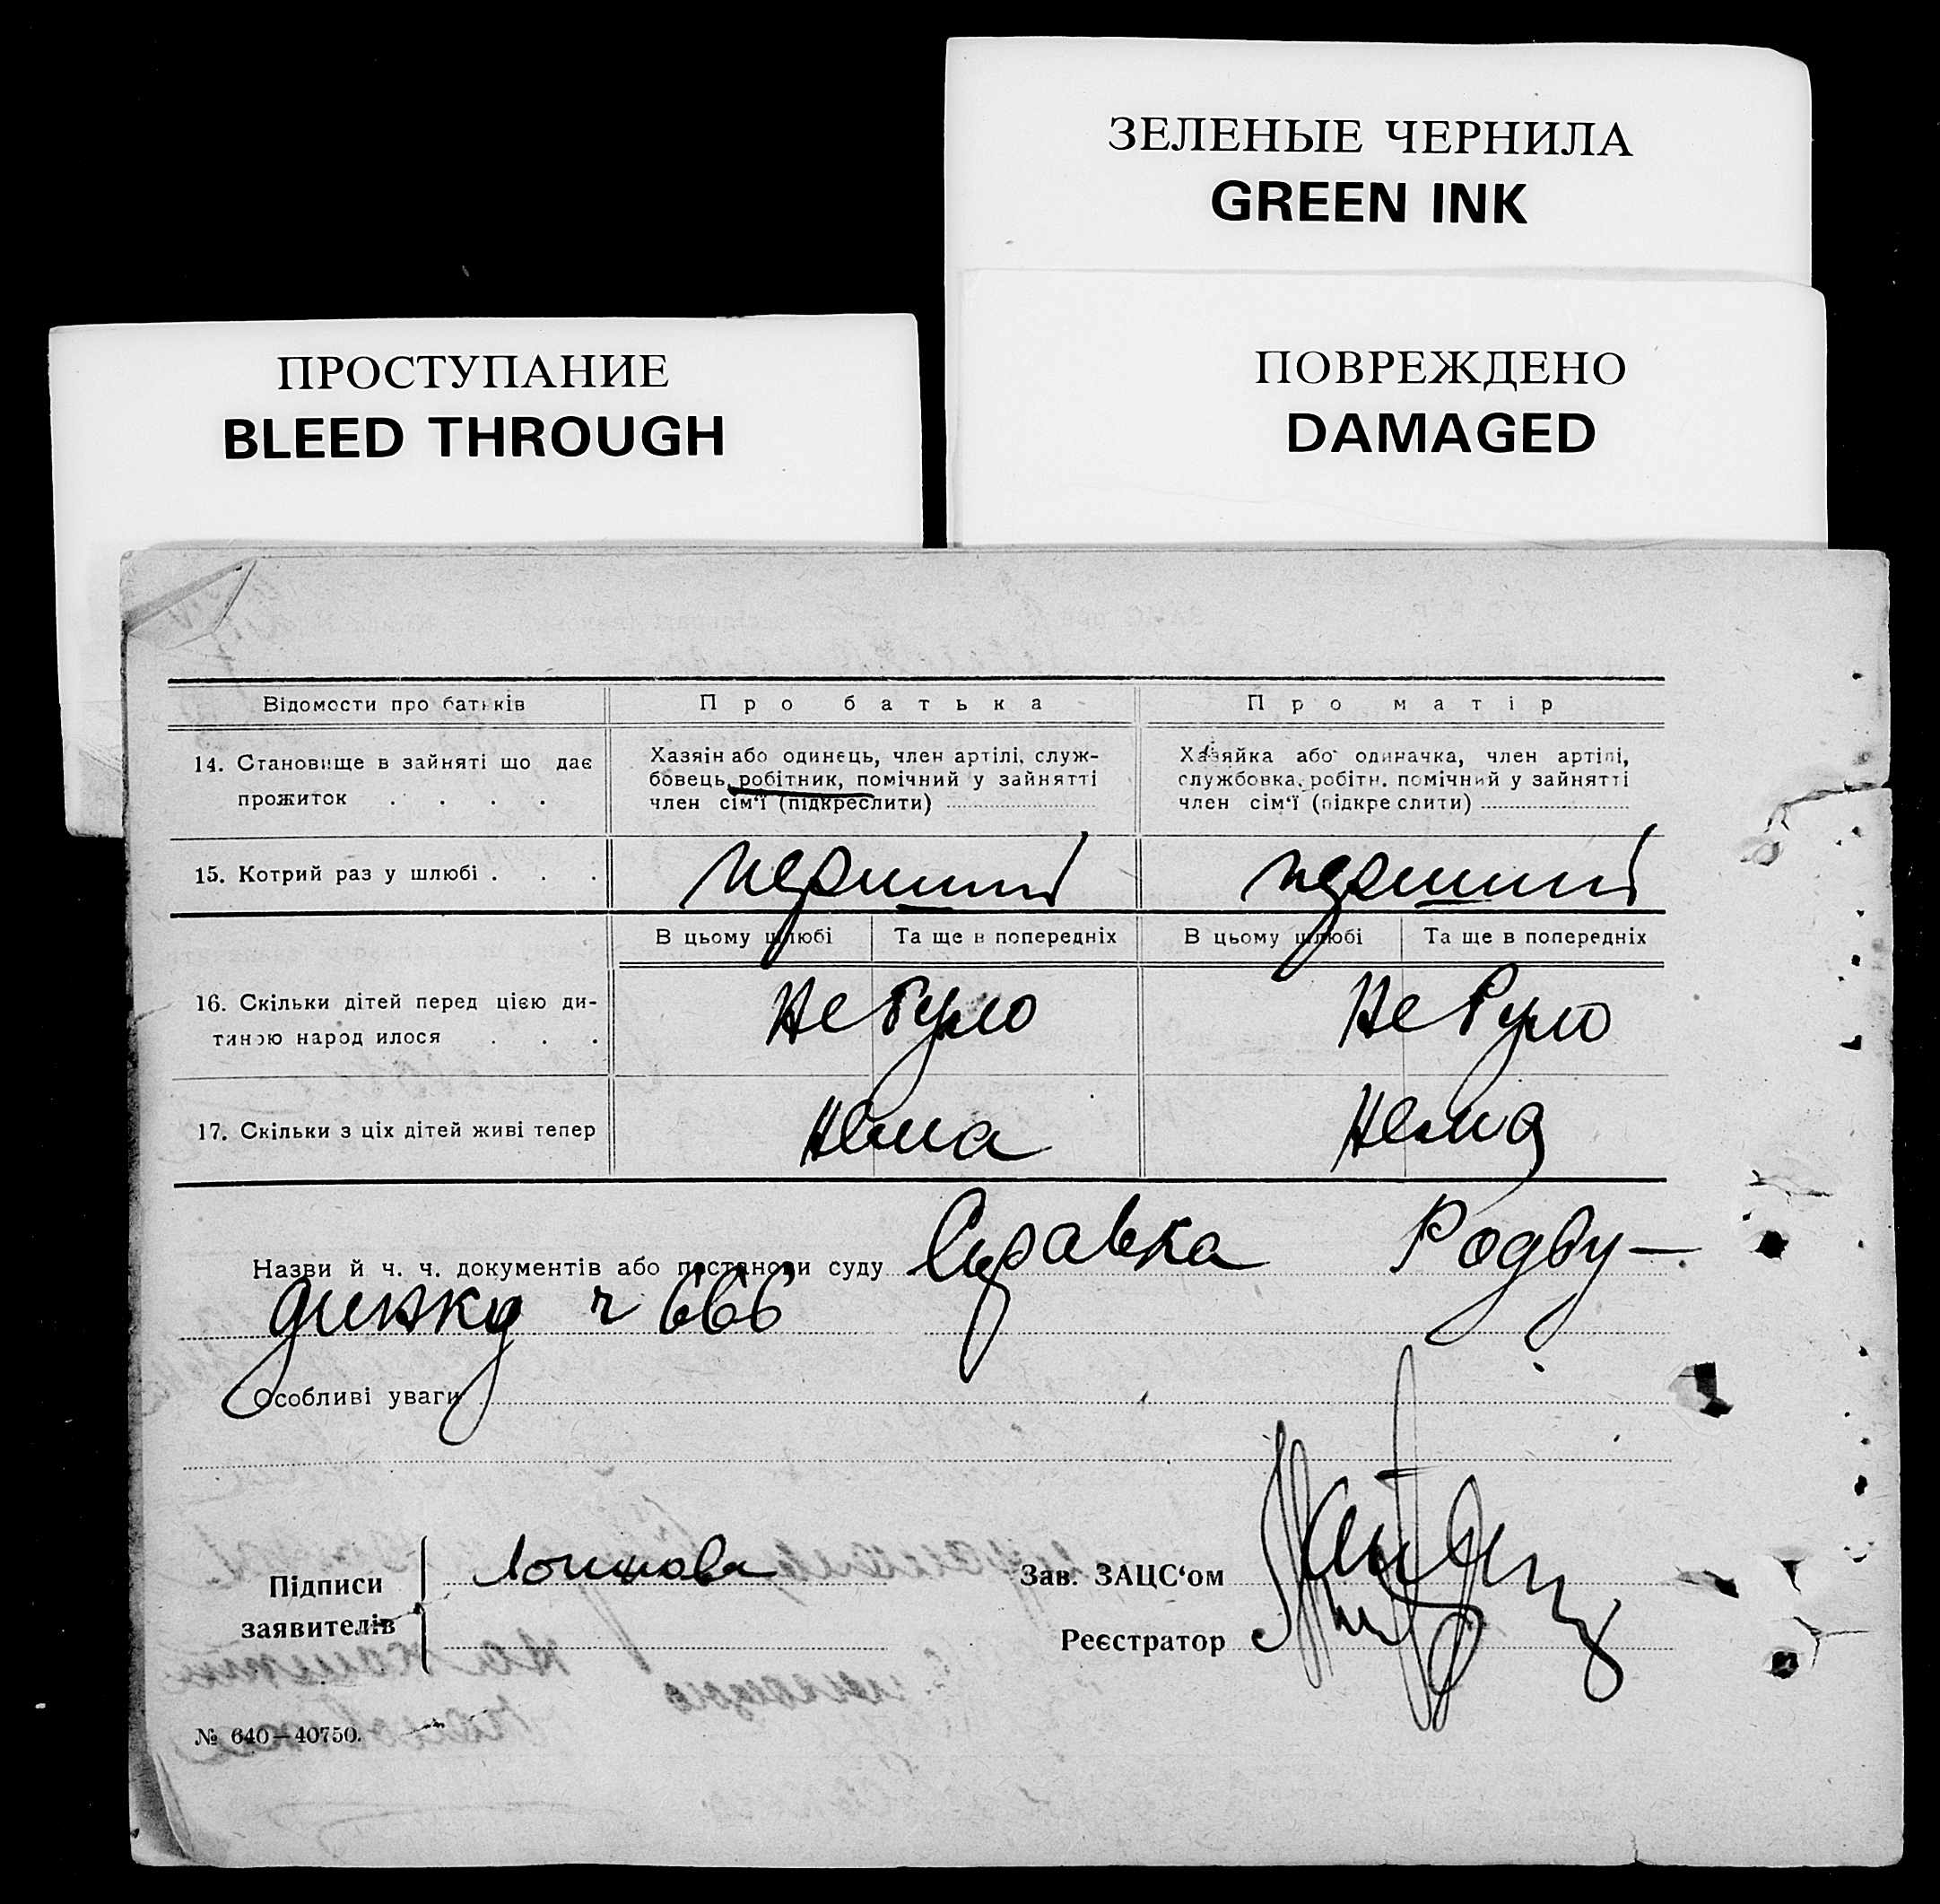 ЗЕЛЕНЫЕ ЧЕРНИЛА
GREEN INK
ПРОСТУПАНИЕ
BLEED THROUGH
ПОВРЕЖДЕНО
DAMAGED
Відомости про батьків
Про батька
Про матір
14. Становище в зайняті що дає
прожиток . . . .
Хазяін або одинець, член артілі, служ-
бовець, робітник, помічний у зайнятті
член сім'ї (підкреслити)
Хазяйка або одиначка, член артілі,
службовка, робітн. помічний у зайнятті
член сім'ї (підкреслити)
15. Котрий раз у шлюбі . . .
перший
перший
В цьому шлюбі
Та ще в попередніх
В цьому шлюбі
Та ще в попередніх
16. Скільки дітей перед цією ди-
тиною народилося . . .
Не було
Не було
17. Скільки з ціх дітей живі тепер
Нема
Нема
Назви й ч. ч. документів або постанови суду Справка Родбу-
динку ч 666
Особливі уваги
Підписи
заявителів
Зав. ЗАЦС‘ом
Реєстратор
№ 640—40750.